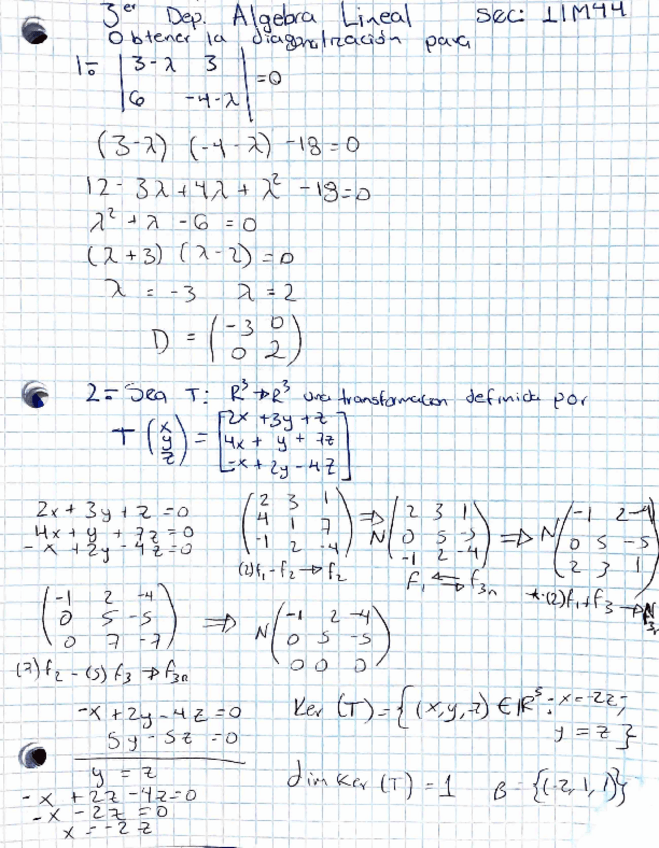 3er Dep. Algebra Lineal sec: 11M44
Obtener la diagonalización para
1= |3-λ 3|
|6 -4-λ| =0
(3-λ) (-4-λ) -18=0
12- 3λ+4λ+λ² -18=0
λ²+λ -6 =0
(λ+3) (λ-2)=0
λ = -3 λ=2
D = (-3 0)
(0 2)
2= Sea T: R³→R³ una transformacion definida por
T (x y z) = [2x +3y +z
4x + y + 7z
-x + 2y -4z]
2x+3y+z=0
4x+y+7z=0
-x+2y-4z=0
(2 3 1
4 1 7
-1 2 -4)
(2)f1-f2→f2
⇒ N (2 3 1
0 5 -5
-1 2 -4)
F1 ⇆ f3n
⇒ N (-1 2 -4
0 5 -5
2 3 1)
(2)f1+f3→
(-1 2 -4
0 5 -5
0 7 -7)
(7)f2-(5)f3→f3n
⇒ N (-1 2 -4
0 5 -5
0 0 0)
-x+2y-4z=0
5y-5z=0
y=z
-x+2z-4z=0
-x-2z=0
x=-2z
Ker (T)={(x,y,z) ∈ R³: x=-2z;
y=z}
dim Ker (T)=1 B={(-2,1,1)}